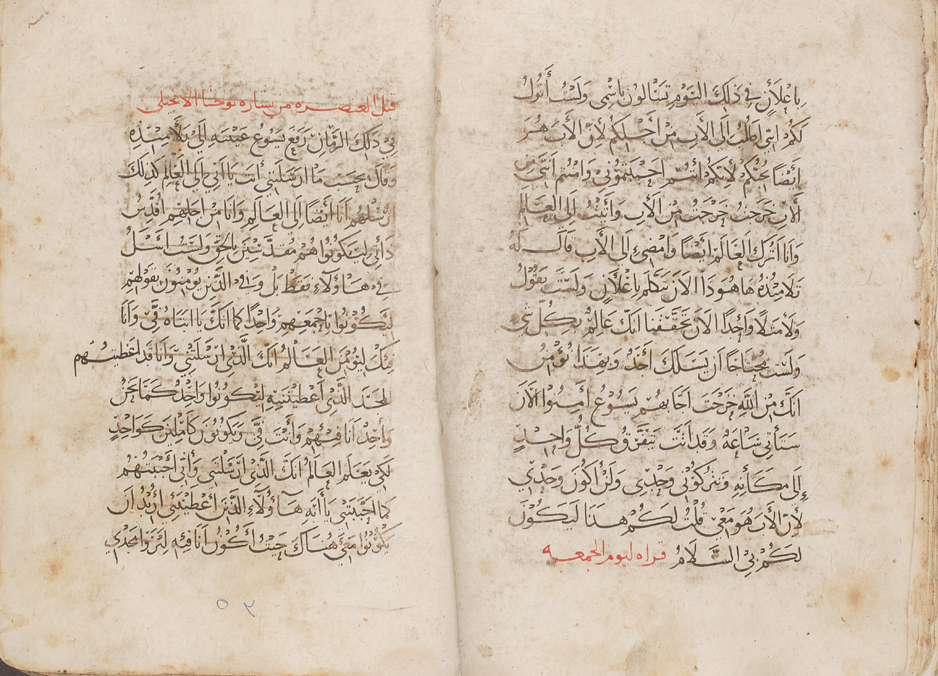 باعلان في ذلك اليوم تسالون باسمي ولست اقول
لكم اني اطلب الى الاب من اجلكم لان الاب هو
ايضا يحبكم لانكم انتم احببتموني وامنتم انني من
الاب خرجت خرجت من الاب واتيت الى العالم
وانا اترك العالم ايضا وامضي الى الاب قال له
تلاميذه ها هوذا الان تتكلم باعلان ولست تقول
ولا مثلا واحدا الان تحققنا انك عالم بكل شي
ولست محتاجا ان يسلك احد وبهذا نومن
انك من الله خرجت اجابهم يسوع امنوا الان
ستاتي ساعه وقد اتت يتفرق كل واحد
الى مكانه وتتركوني وحدي ولن اكون وحدي
لان الاب هو معي قلت لكم هذا ليكون
لكم بي السلام قراه ليوم الجمعه
قبل العنصره من بشاره يوحنا الانجيلي
في ذلك الزمان رفع يسوع عينيه الى تلاميذه
وقال بحسب ما ارسلتني انت يا ابي الى العالم كذلك
ارسلهم انا ايضا الى العالم وانا من اجلهم اقدس
ذاتي ليكونوا هم مقدسين بالحق ولست اسل
في هاولاء فقط بل وفي الذين يومنون بقولهم
ليكونوا باجمعهم واحدا كما انك يا ابتاه في وانا
فيك ليومن العالم انك الذي ارسلتني وانا قد اعطيتهم
المجد الذي اعطيتنيه ليكونوا واحد كما نحن
واحد انا فيهم وانت في ويكونون كاملين كواحد
لكي يعلم العالم انك الذي ارسلتني واني احببتهم
كما احببتني يا ابه هاولاء الذين اعطيتني اريد ان
يكونوا معي هناك حيث اكون انا فيه ليروا مجدي